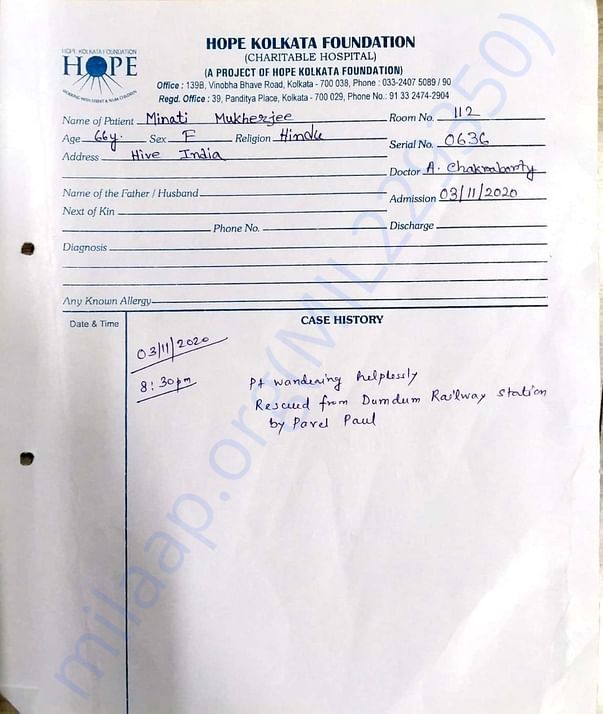 HOPE KOLKATA FOUNDATION
(CHARITABLE HOSPITAL)
(A PROJECT OF HOPE KOLKATA FOUNDATION)
Office : 139B, Vinobha Bhave Road, Kolkata - 700 038, Phone : 033-2407 5089 / 90
Regd. Office : 39, Panditya Place, Kolkata - 700 029, Phone No.: 91 33 2474-2904
HOPE KOLKATA FOUNDATION
HOPE
WORKING WITH STREET & SLUM CHILDREN
Name of Patient Minati Mukherjee Room No. 112
Age 66y. Sex F Religion Hindu Serial No. 0636
Address Hive India
Doctor A. Chakraborty
Name of the Father / Husband
Admission 03/11/2020
Next of Kin
Phone No. Discharge
Diagnosis
Any Known Allergy
Date & Time CASE HISTORY
03/11/2020
8:30pm Pt wandering helplessly
Rescued from Dumdum Railway station
by Pavel Paul
milaap.org(MIL229250)